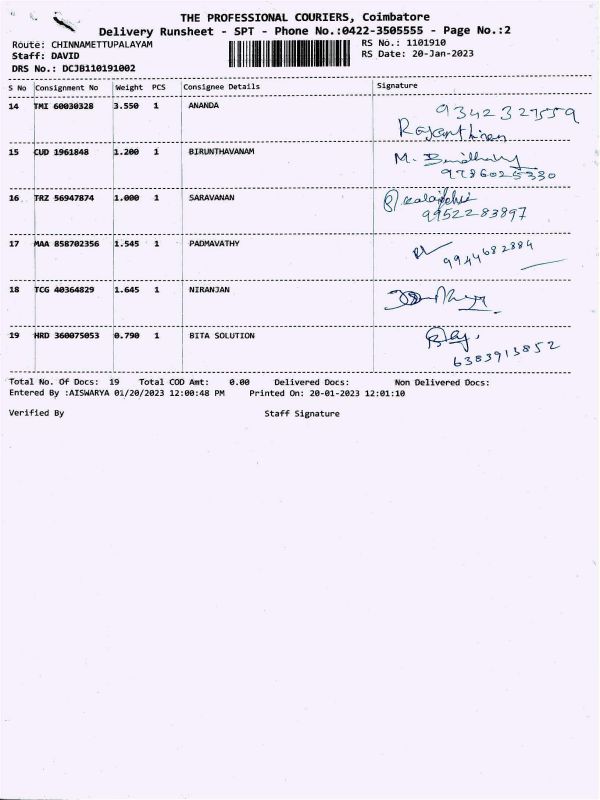 THE PROFESSIONAL COURIERS, Coimbatore
Delivery Runsheet - SPT - Phone No.:0422-3505555 - Page No.:2
Route: CHINNAMETTUPALAYAM
Staff: DAVID
DRS No.: DCJB110191002
RS No.: 1101910
RS Date: 20-Jan-2023
S No Consignment No Weight PCS Consignee Details Signature
14 TMI 60030328 3.550 1 ANANDA 9342327559
15 CUD 1961848 1.200 1 BIRUNTHAVANAM M.
9786025330
16 TRZ 56947874 1.000 1 SARAVANAN
9952283897
17 MAA 858702356 1.545 1 PADMAVATHY
9944682884
18 TCG 40364829 1.645 1 NIRANJAN
19 HRD 360075053 0.790 1 BITA SOLUTION
6383913852
Total No. Of Docs: 19 Total COD Amt: 0.00 Delivered Docs: Non Delivered Docs:
Entered By :AISWARYA 01/20/2023 12:00:48 PM Printed On: 20-01-2023 12:01:10
Verified By Staff Signature